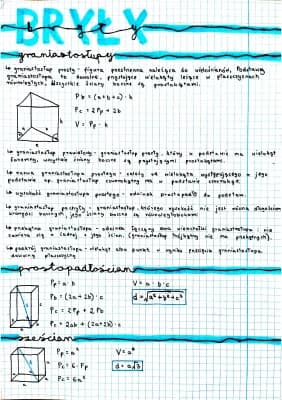 BRYŁY
graniastosłupy
↳ graniastosłup prosty - figura przestrzenna należąca do wielościanów, Podstawy
graniastosłupa to dowolne, przystające wielokąty leżące w płaszczyznach
równoległych, Wszystkie ściany boczne są prostokątami.
Pb = (a+b+c)·h
Pc = 2Pp + Pb
V = Pp · h
↳ graniastosłup prawidłowy - graniastosłup prosty, który w podstawie ma wielokąt
foremny, wszystkie ściany boczne są przystającymi prostokątami.
↳ nazwa graniastosłupa prostego - zależy od wielokąta występującego w jego
podstawie np. graniastosłup czworokątny ma w podstawie czworokąt.
↳ wysokość graniastosłupa prostego - odcinek prostopadły do podstaw.
↳ graniastosłup pochyły - graniastosłup, którego wysokość nie jest równa długościom
krawędzi bocznych, jego ściany boczne są równoległobokami
↳ przekątna graniastosłupa - odcinek łączący dwa wierzchołki graniastosłupa i nie
zawiera się w żadnej z jego ścian. (graniastosłup trójkątny nie ma przekątnych).
↳ przekrój graniastosłupa - wielokąt albo punkt w wyniku przecięcia graniastosłupa
dowolną płaszczyzną
prostopadłościan
Pp = a·b
V = a·b·c
Pb = (2a+2b)·c
d = √a²+b²+c²
Pc = 2Pp + Pb
Pc = 2ab + (2a+2b)·c
sześcian
Pp = a²
V = a³
Pc = 6·Pp
d = a√3
Pc = 6a²